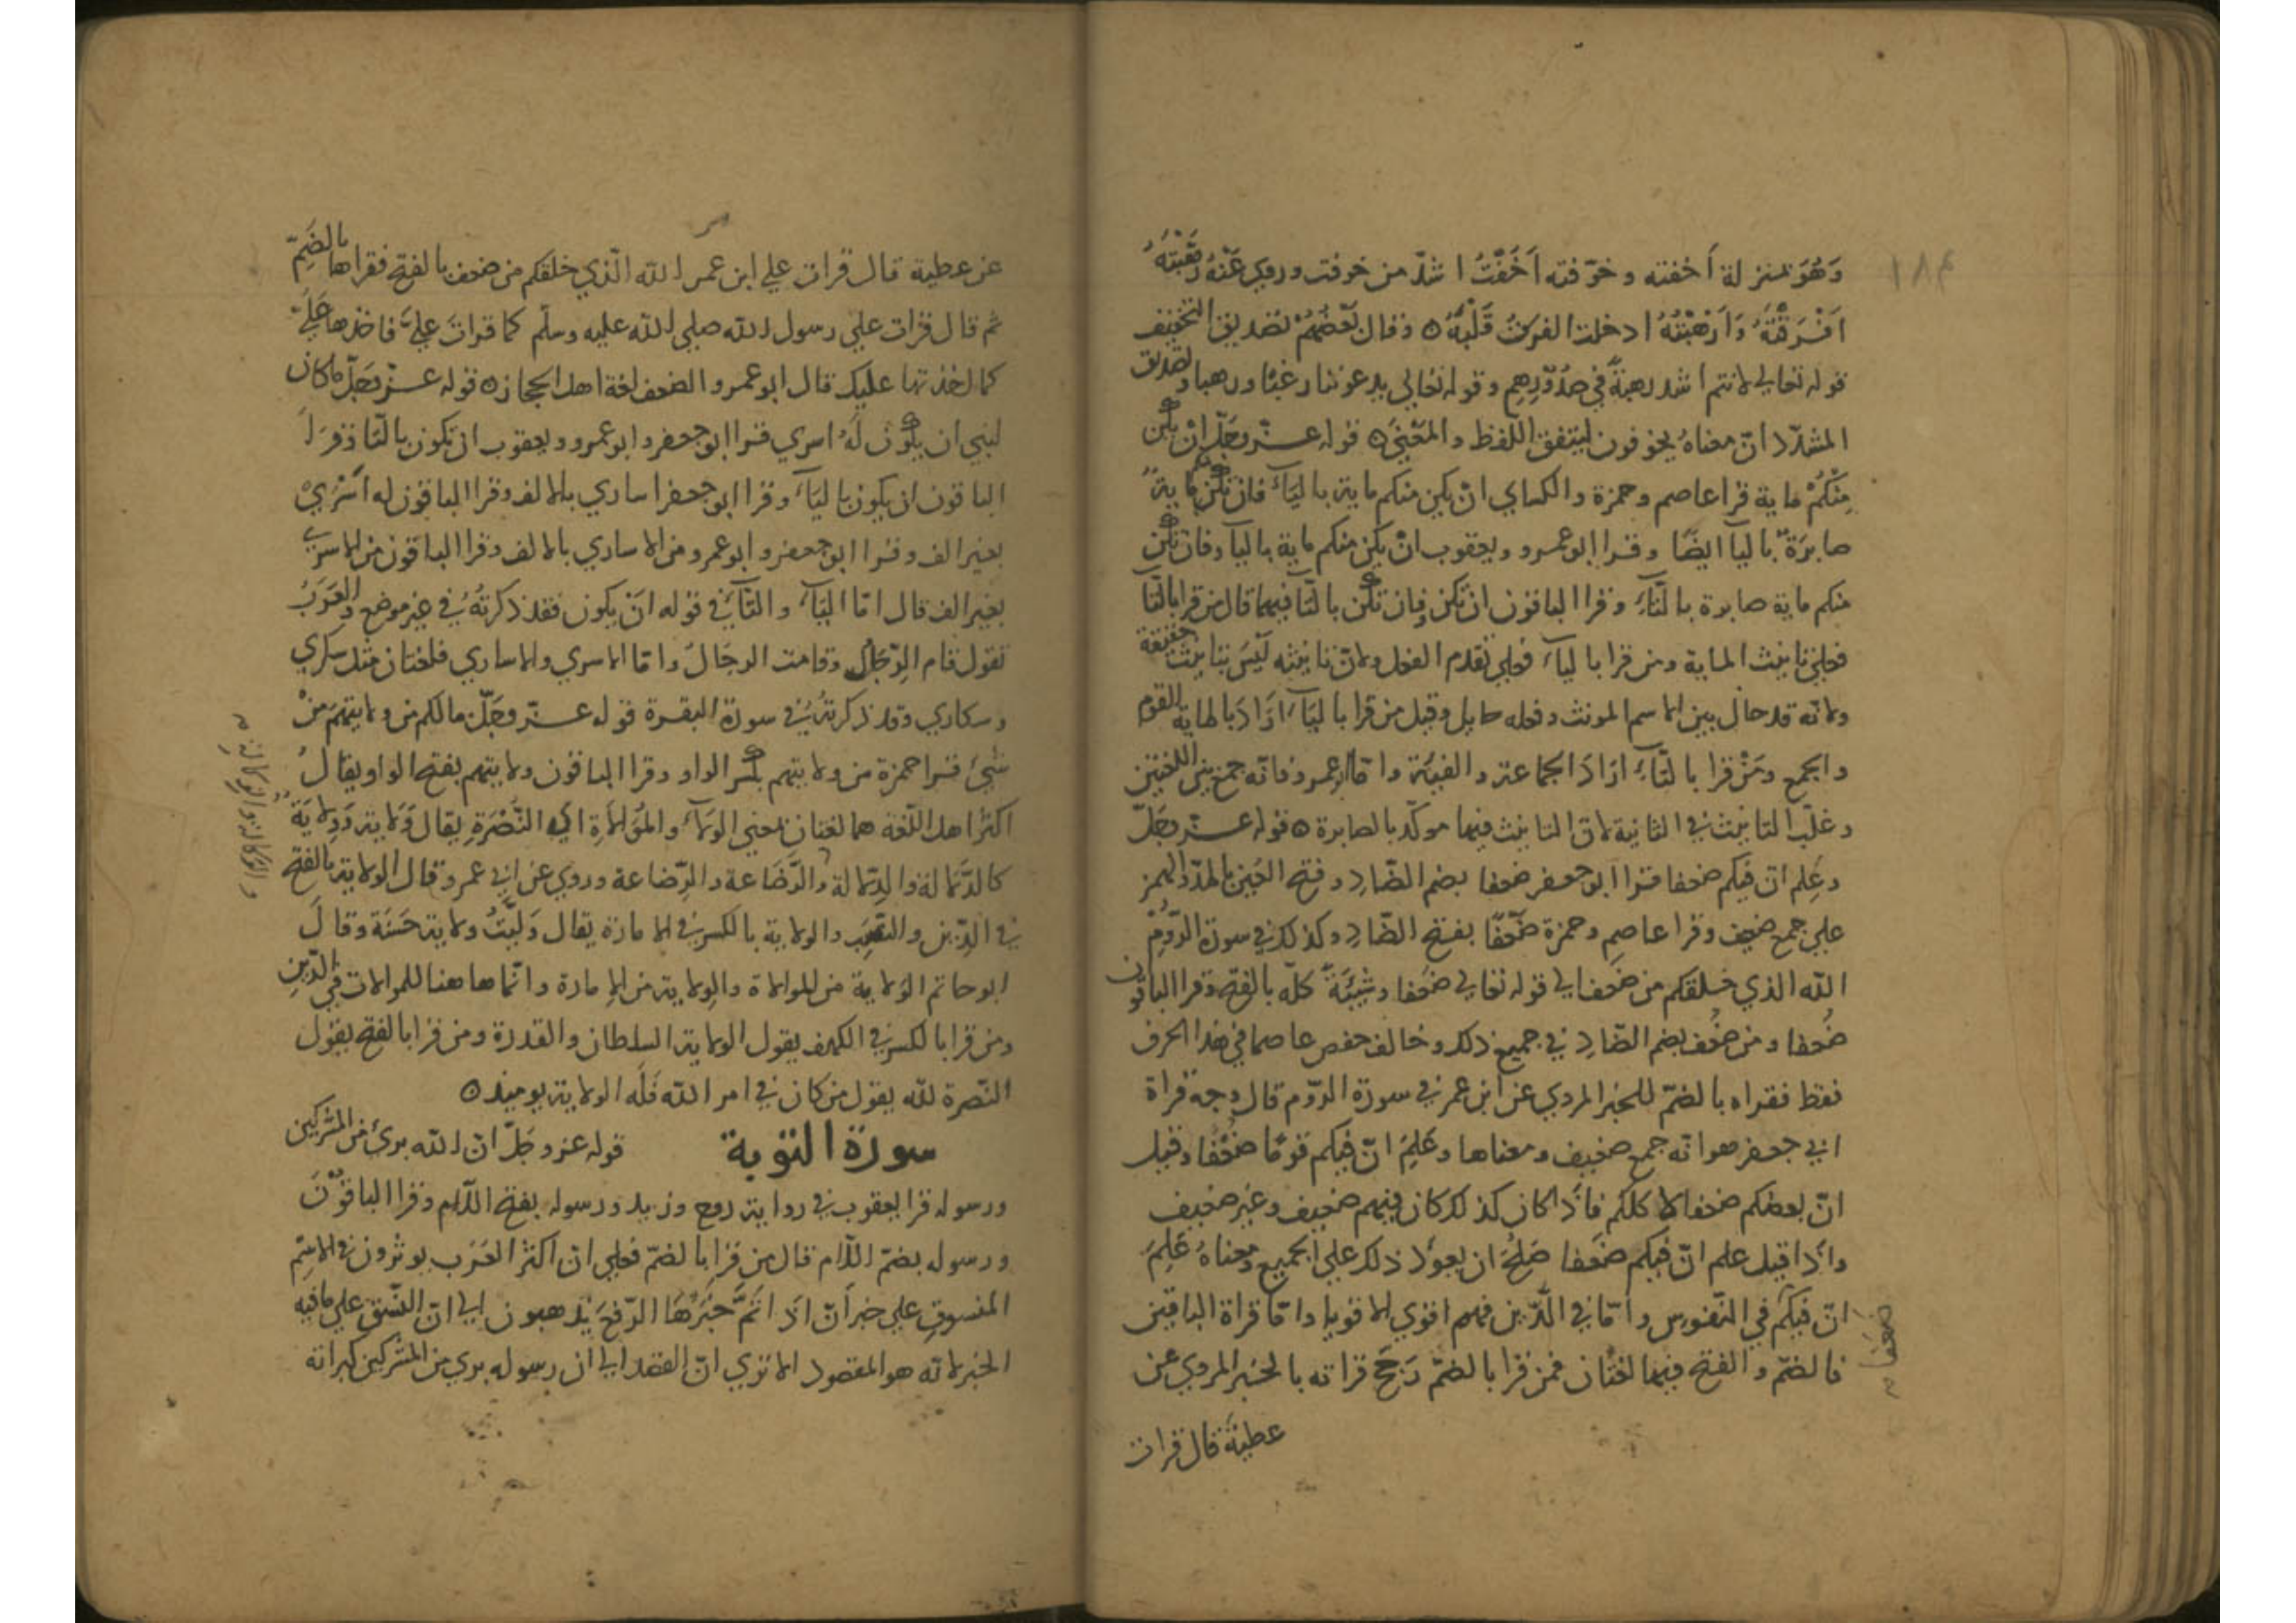 ١٨٤
وَهُوَ بمنزلة أخفته وخوّفته أَخَفْتُ اشدّ من خوفت وروي عَنْهُ رَهَّبْتَهُ
اَفْرَقْتَهُ وَاَرْهَبْتَهُ ادخلت الفرق قَلْبَهُ ٥ وقال بَعْضُهُمْ تصديق التخفيف
قوله تعالي لانتم اشد رهبةً في صُدُوْرِهِم وقوله تعالي يدعوننا رغبًا ورهبا وتصديق
المشدّد انّ معناهُ يخوفون ليتفق اللفظ والمَعْنَى ٥ قوله عزّ وجَلّ اِنْ يكن
مِنْكُمْ ماية قرا عاصم وحمزة والكساي انْ يكن منكم ماية بالياءِ فان تكن ماية
صابرَةٌ باليا ايضًا وقرا ابو عمرو ويعقوب انْ يكن منكم ماية باليا وفان تكن
منكم ماية صابرة بالتَّاءِ وقرا الباقون ان تكن فان تكن بالتا فيهما قال من قرا بالتا
فعلي تانيث الماية ومن قرا بالياءِ فعلي تقدم الفعل ولانّ تانيثه لَيْسَ بتانيث حقيقة
ولانه قد حال بين الاسم المونث وفعله حايل وقيل من قرا بالياءِ اَرَادَ بالماية القوم
والجمع ومَنْ قرا بالتّاءِ ارَادَ الجماعة والفيئة وامّا ابو عمرو فانّه جمع بين اللغتين
وغلّب التانيث في الثانية لانّ التانيث فيها موكّد بالصابرة ٥ قوله عزّ وجَلّ
وعَلِم انّ فيكم ضعفا قرا ابو جعفر ضعفا بضم الضّادِ وفتح العَين بالمدّ والهمز
علي جمع ضعيف وقرا عاصم وحمزة ضَعْفًا بفتح الضّادِ وكذلك في سورة الرُّومِ
الله الذي خلقكم من ضَعف الي قوله تعالي ضَعفا وشَيْبَةً كلّه بالفتح وقرا الباقون
ضُعفا ومن ضُعف بضم الضّادِ في جميع ذلك وخالف حفص عاصما في هذا الحرف
فقط فقراه بالضمّ للخبر المروي عن ابن عمر في سورة الرّوم قال وجه قراة
ابي جعفر هو انه جمع ضعيف ومعناها وعَلِمَ انّ فيكم قومًا ضُعَفَا وقيل
انّ بعضكم ضعفا لا كلكم فاذَا كان كذلك كان فيهم ضعيف وغير ضعيف
واذَا قيل علم انّ فيكم ضَعفا صَلُحَ ان يعود ذلك علي الجميع ومعناهُ عَلِمَ
انّ فيكم في النّفوس وامّا في الدّين فهم اقوي الاقويا وامّا قراة الباقين
فالضمّ والفتح فيها لغتان فمن قرا بالضمّ رَجَّحَ قراته بالخبر المروي عن
ضعفا
عطية قال قرات
عن عطية قال قرات علي ابن عمر الله الّذي خلقكم من ضعف بالفتح فقراها بالضمّ
ثم قال قرات علي رسول الله صلي الله عليه وسلّم كما قراتَ عليَّ فاخذها عَلَيَّ
كما اخذتها عليك قال ابو عمرو الضعف لغة اهل الحجاز ٥ قوله عزّ وجَلّ ما كان
لنبي ان يكون لَهُ اسري قرا ابو جعفر وابو عمرو ويعقوب ان تكون بالتا وقرا
الباقون ان يكون بالياءِ وقرا ابو جعفر اساري بالالف وقرا الباقون له اَسْرَيْ
بغير الف وقرا ابو جعفر وابو عمرو من الاساري بالالف وقرا الباقون من الاسري
بغير الف قال امّا اليَاءُ والتَّاءُ في قوله اَنْ يكون فقد ذكرتُهُ في غير موضع والعَرَبُ
تقول قام الرِّجَالُ وقامت الرجَالُ وامّا الاسري والاساري فلغتان مثل سكري
وسكاري وقد ذكرتُهُ في سورة البقرة قوله عزّ وجَلّ مالكم من ولايتهم مِنْ
شيءٍ قرا حمزة من ولايتهم بكسر الواو وقرا الباقون ولايتهم بفتح الواو يقالُ
اكثر اهل اللّغة هما لغتان بمعني الولاءِ والمُوَالاةِ اي النُّصْرَةِ يقال وَلاية وَوِلايَةٌ
كالدَّلالة والدِّلالة والرَّضَاعة والرِّضاعة وروي عن ابي عمرو قال الولاية بالفتح
في الدِّين والنَّصب والولاية بالكسر في الامارة يقال وَلِيتُ ولاية حَسَنَة وقالَ
ابو حاتم الوَلاية من الموالاة والوِلاية من الامارة وانّما هاهنا للموالات في الدّينِ
ومن قرا بالكسر في الكهف يقول الولاية السلطان والقدرة ومن قرا بالفتح يقول
النّصرة لله يقول من كان في امر الله فَلَه الولاية يوميذ ٥
سورة التوبة قوله عز وجَلّ انّ الله بريٌ من المشركين
ورسوله قرا يعقوب في رواية روح وزيد ورسوله بفتح اللّام وقرا الباقوْنَ
ورسوله بضمّ اللّام قال من قرا بالضمّ فعلي ان اكثر العَرَب يوثرون في الاسْمِ
المنسوق علي خبر اَنّ اذَا تَمَّ خَبَرُهَا الرّفعَ يذهبون الي انّ النّسق علي ما فيه
الخبر لانّه هو المقصود الا تري انّ القصد الي ان رسوله بري من المشركين كبراته